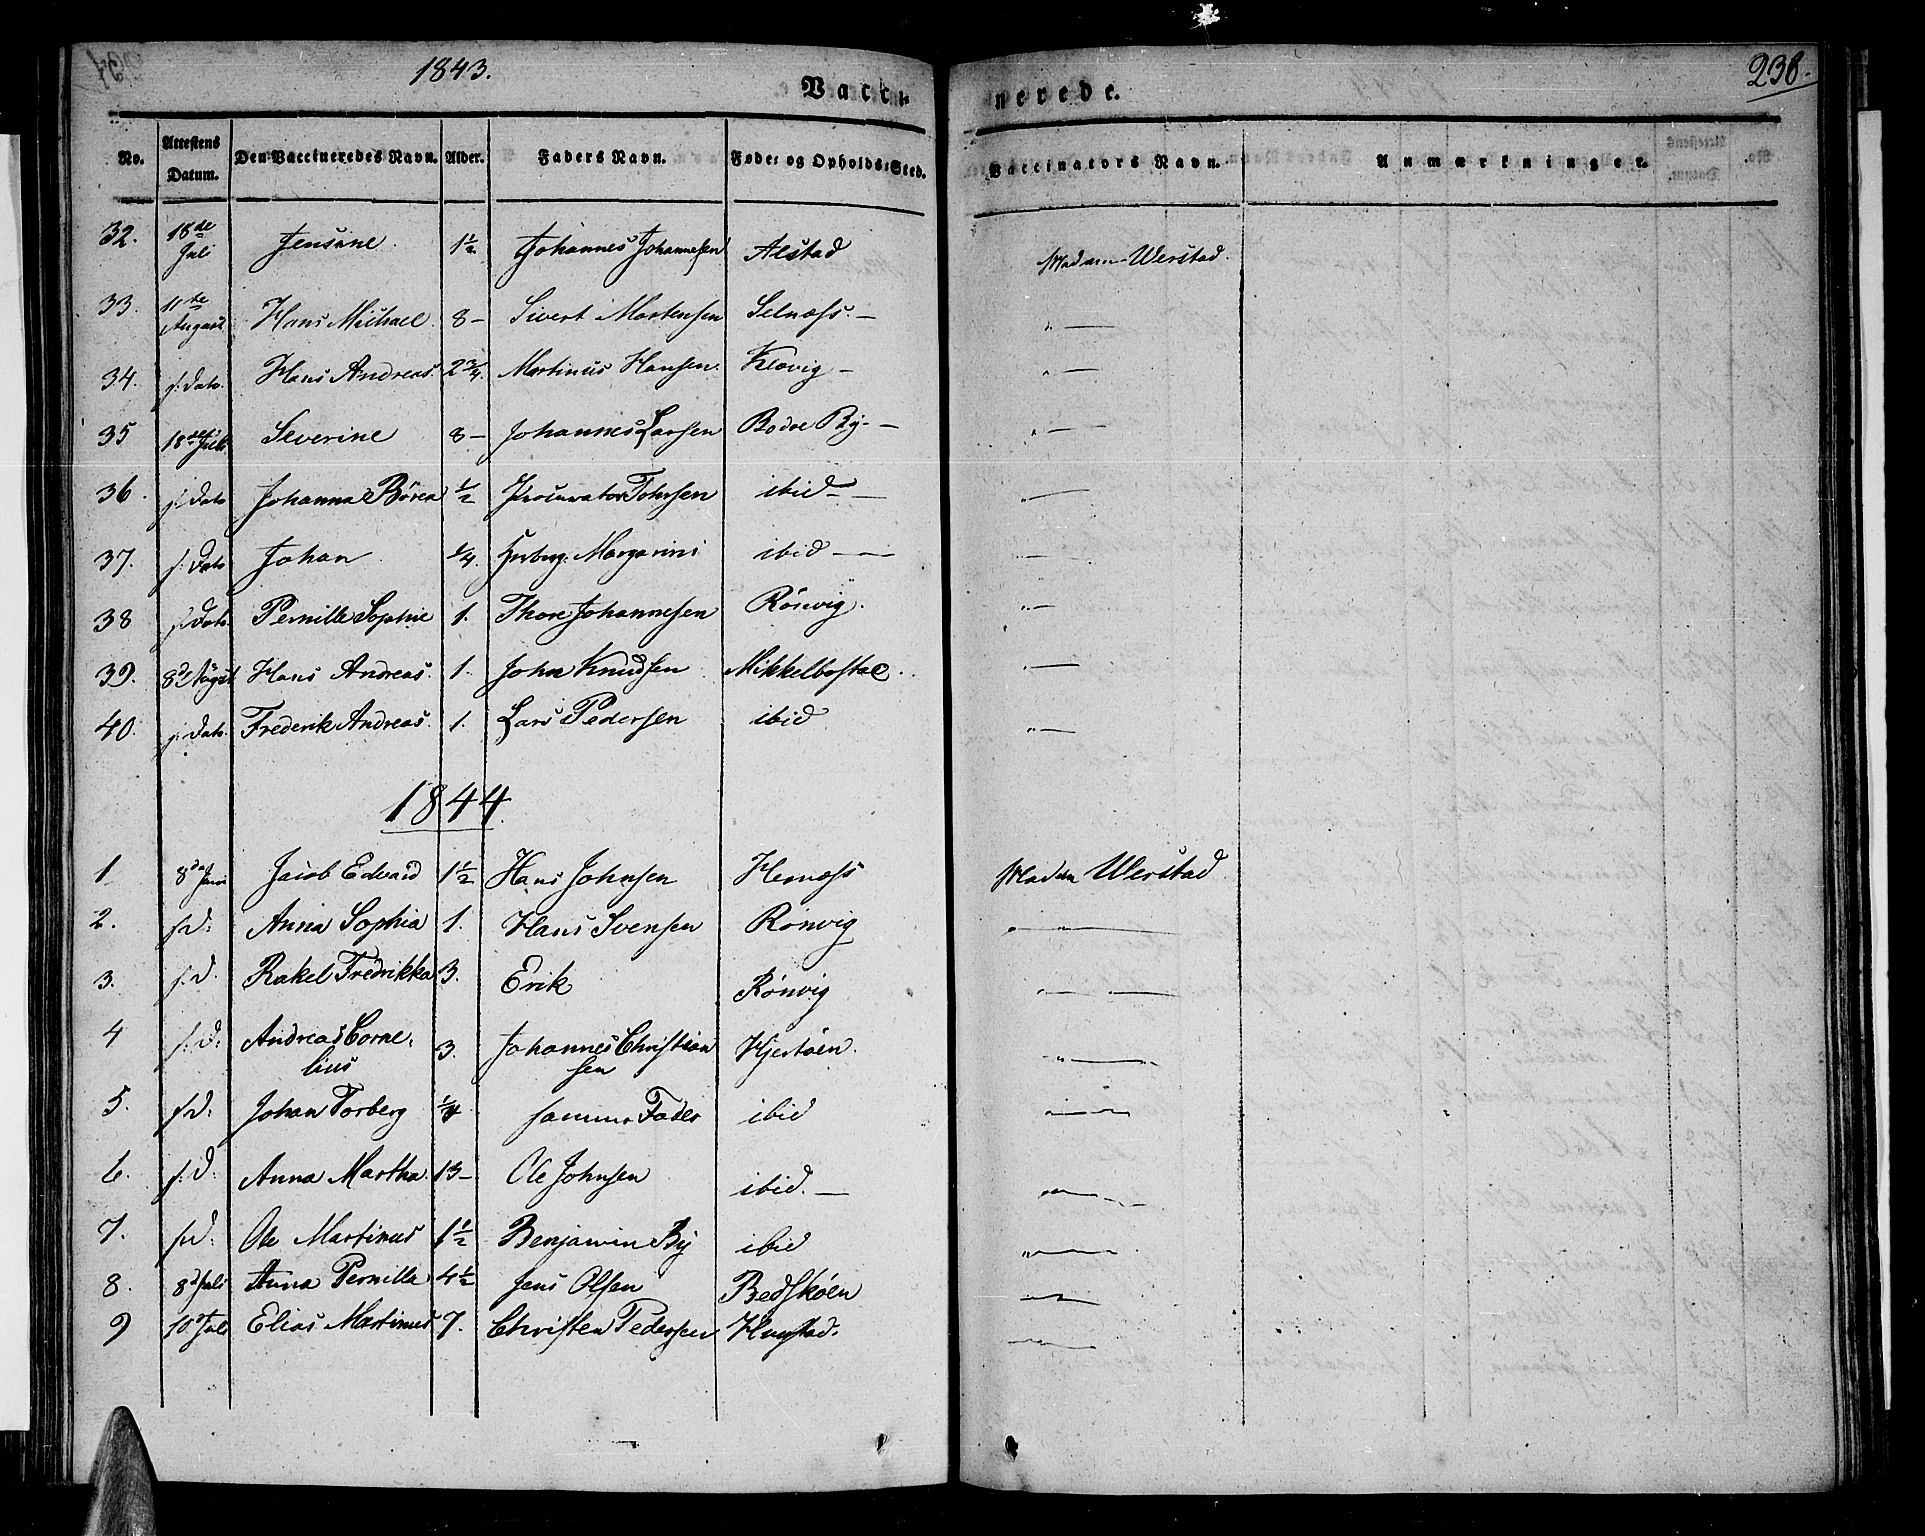 1843.
238.
Vacci-
nerede.
No. Attestens Datum. Den Vaccineredes Navn. Alder. Faders Navn. Føde- og Opholds-Sted. Vaccinators Navn. Anmærkninger.
32. 18de Juli Jensine. 1½ Johannes Johannesen Alstad Madam Werstad.
33. 11te August Hans Michael. 8 – Sivert Mortensen Selnæss. – " —
34. s. Dato. Hans Andreas. 2¾ Martinus Hansen. Kløvig – " —
35 18de Juli Severine 8 – Johannes Larsen Bodøe By. – " —
36. s. Dato Johanna Børea ½ Procurator Tohrsen ibid – — " —
37. s. Dato Johan ¼. Margarini ibid — – " —
38 s. Dato. Pernille Sophie 1. Thore Johannesen Rönvig. " —
39. 8de August Hans Andreas. 1. John Knudsen Mikkelbostad. " —
40. s. Dato. Frederik Andreas. 1. Lars Pedersen ibid " —
1844.
1 8de Juni Jacob Edvard 1½ Hans Johnsen Hernæss Madam Werstad
2. s. d. Anna Sophia 1. Hans Svensen Rönvig — " —
3. s. d. Rakel Fredrikka 3. Erik Rønvig " —
4 s. d. Andreas Corne- 3. Johannes Christian Hjertøen. " —
lius sen
5. s. d. Johan Torberg ¼ samme Fader ibid " —
6. s. d. Anna Martha. 13 – Ole Johnsen ibid. — " —
7. s. d. Ole Martinus 1½ Benjamin By ibid " —
8. 8d Juli Anna Pernilla 4½ Jens Olsen Bodskøen " —
9 10d Juli Elias Martinus 7. Christen Pedersen Hugstad. " —